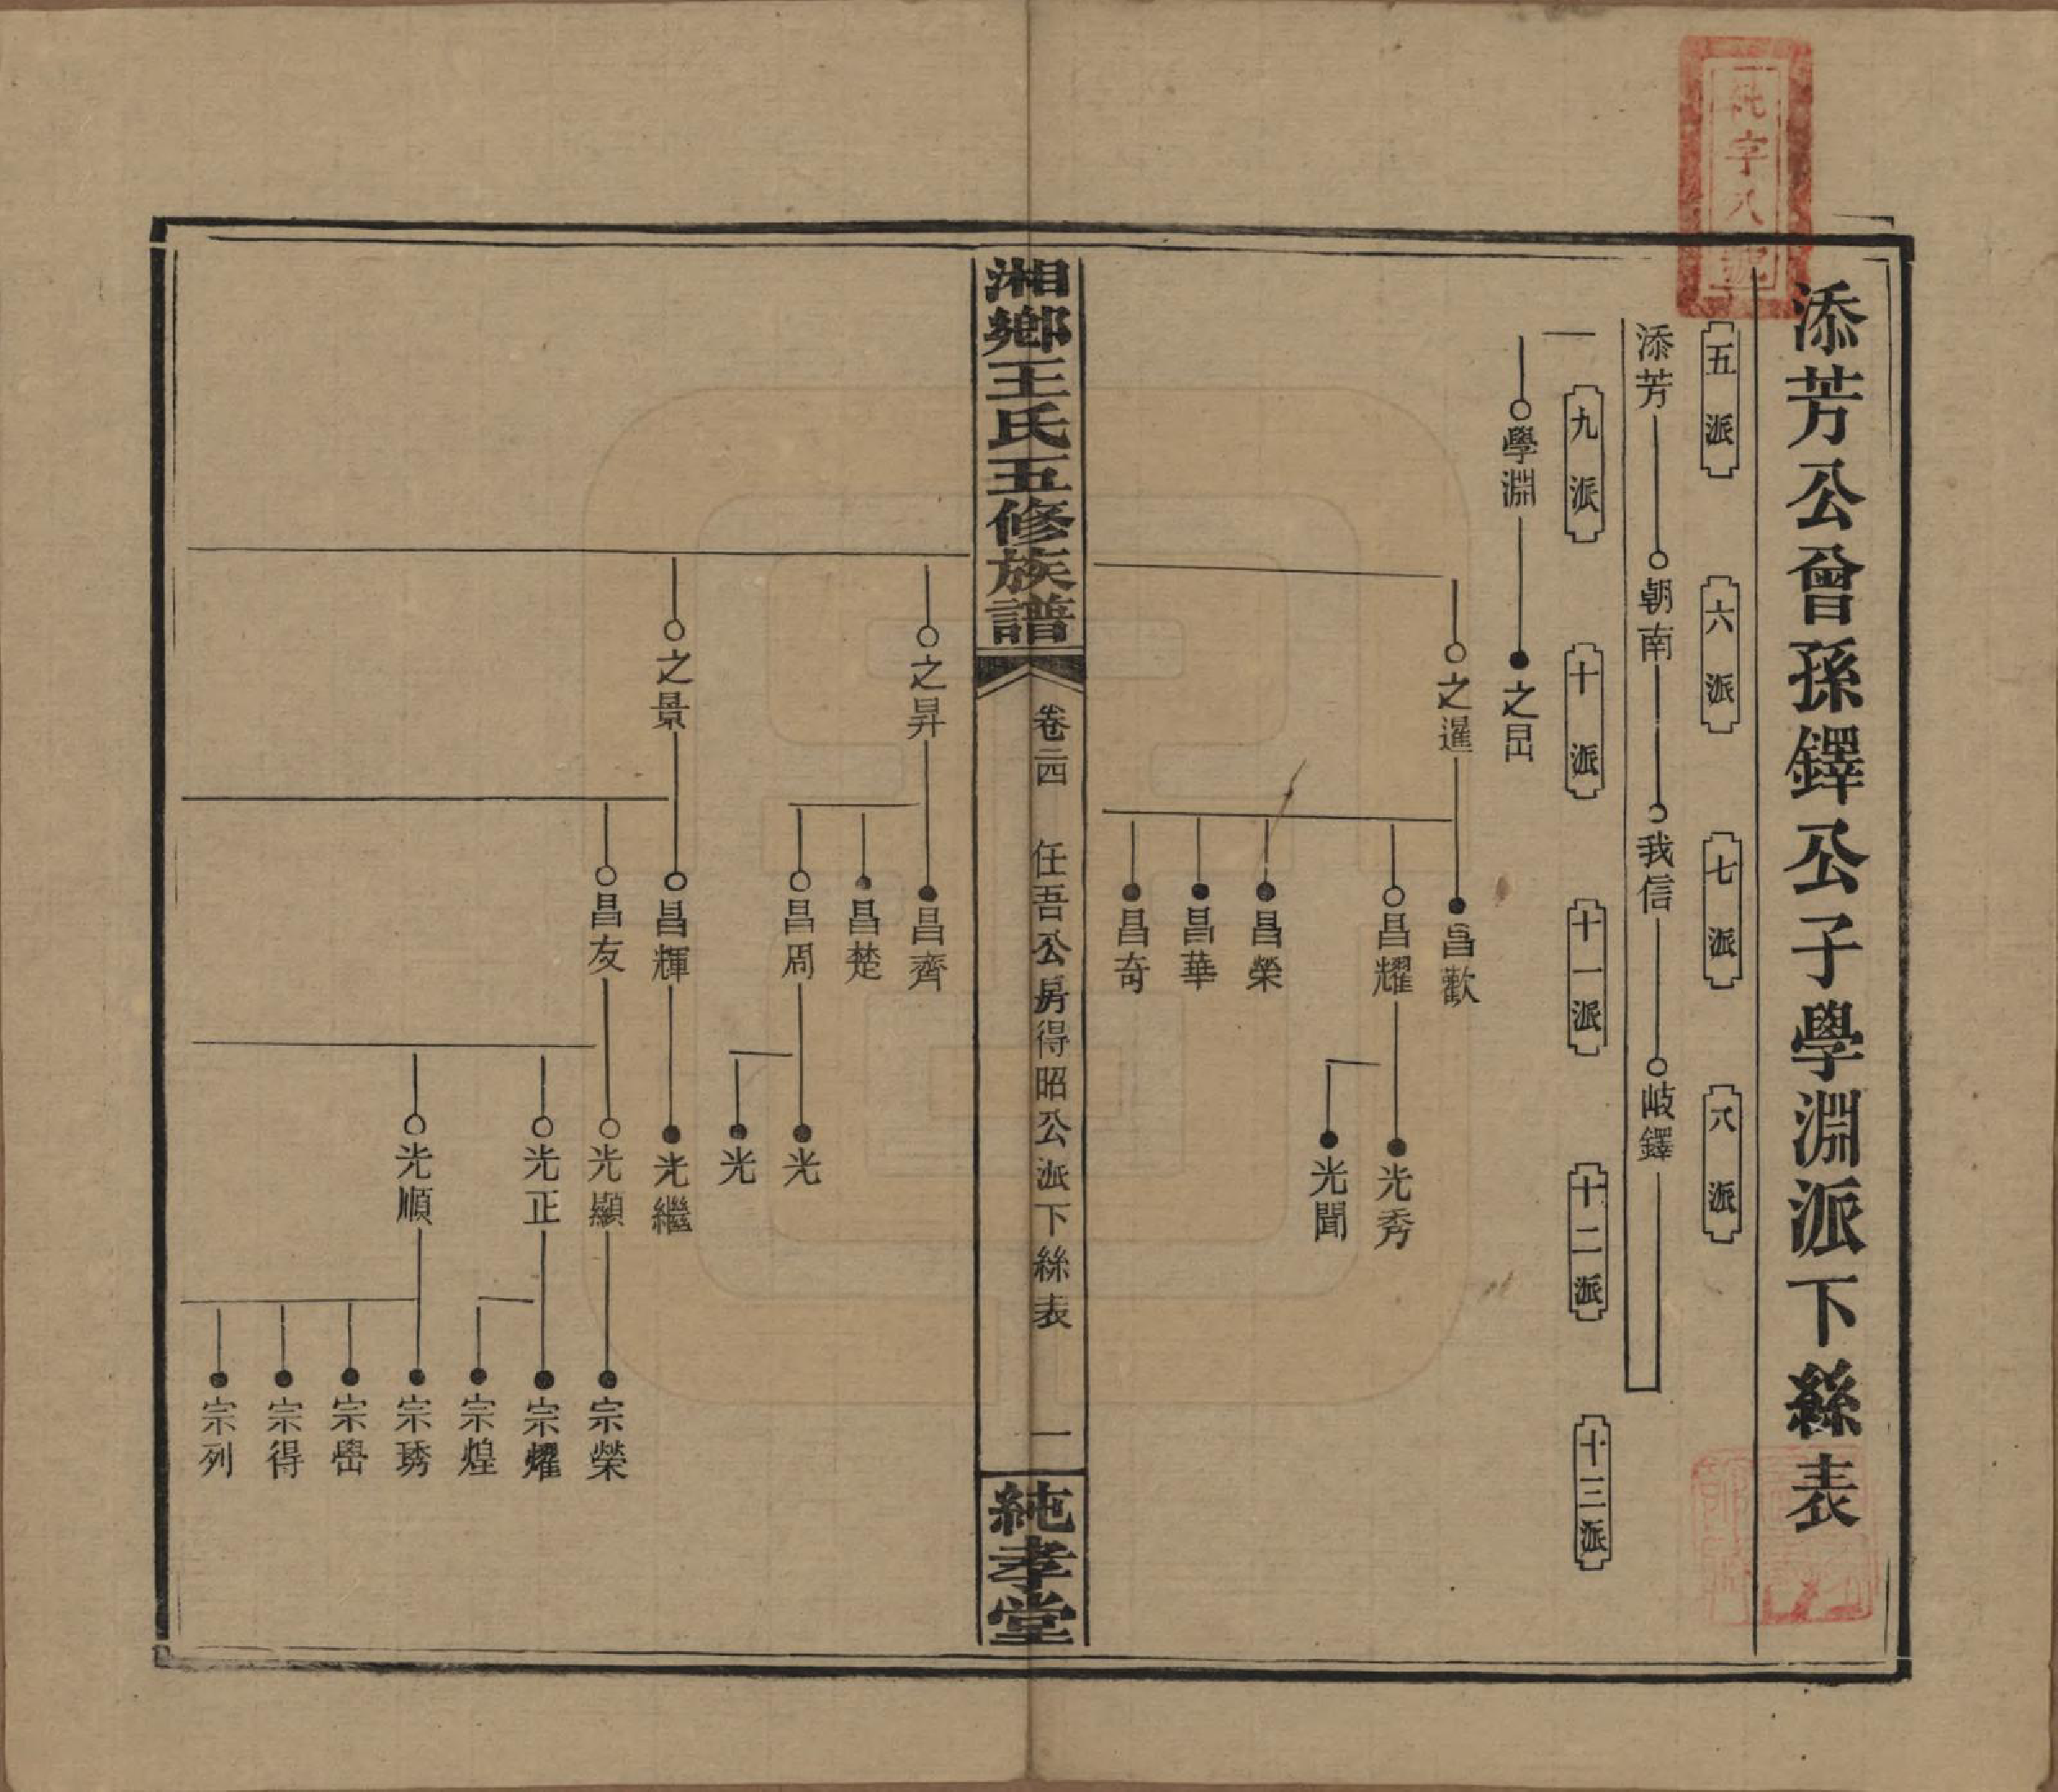 添芳公曾孫鐸公子學淵派下絲表
純字八號
五派
六派
七派
八派
添芳
朝南
我信
岐鐸
九派
十派
十一派
十二派
十三派
學淵
之昌
之暹
昌歡
昌耀
光秀
光聞
昌榮
昌華
昌奇
湘鄉王氏五修族譜
卷二四
任吾公房得昭公派下絲表
一
純孝堂
之昇
昌齊
昌楚
昌周
光
光
之景
昌輝
光繼
昌友
光顯
宗榮
光正
宗耀
宗煌
光順
宗琇
宗嶨
宗得
宗列